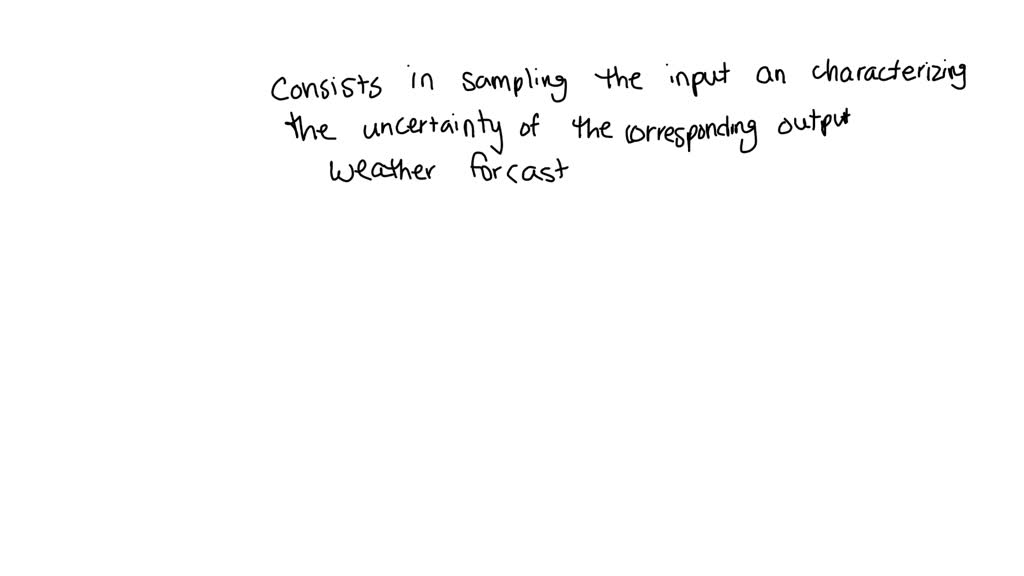 Consists in sampling the input an characterizing
the uncertainty of the corresponding output
weather forcast